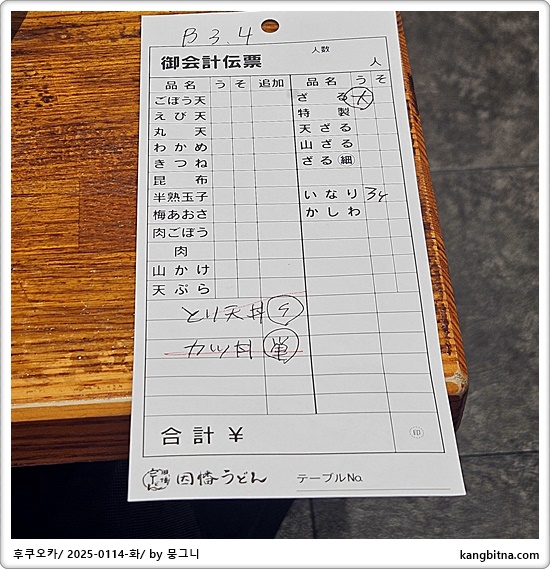 B 3.4
御会計伝票 人数 人
品名 う そ 追加 品名 う そ
ごぼう天 ざる 大
えび天 特製
丸天 天ざる
わかめ 山ざる
きつね ざる細
昆布
半熟玉子 いなり 3ケ
梅あおさ かしわ
肉ごぼう
肉
山かけ
天ぷら
とり天丼 う
カツ丼 単
合計 ¥ 印
因幡うどん テーブルNo.
후쿠오카/ 2025-0114-화/ by 뭉그니
kangbitna.com